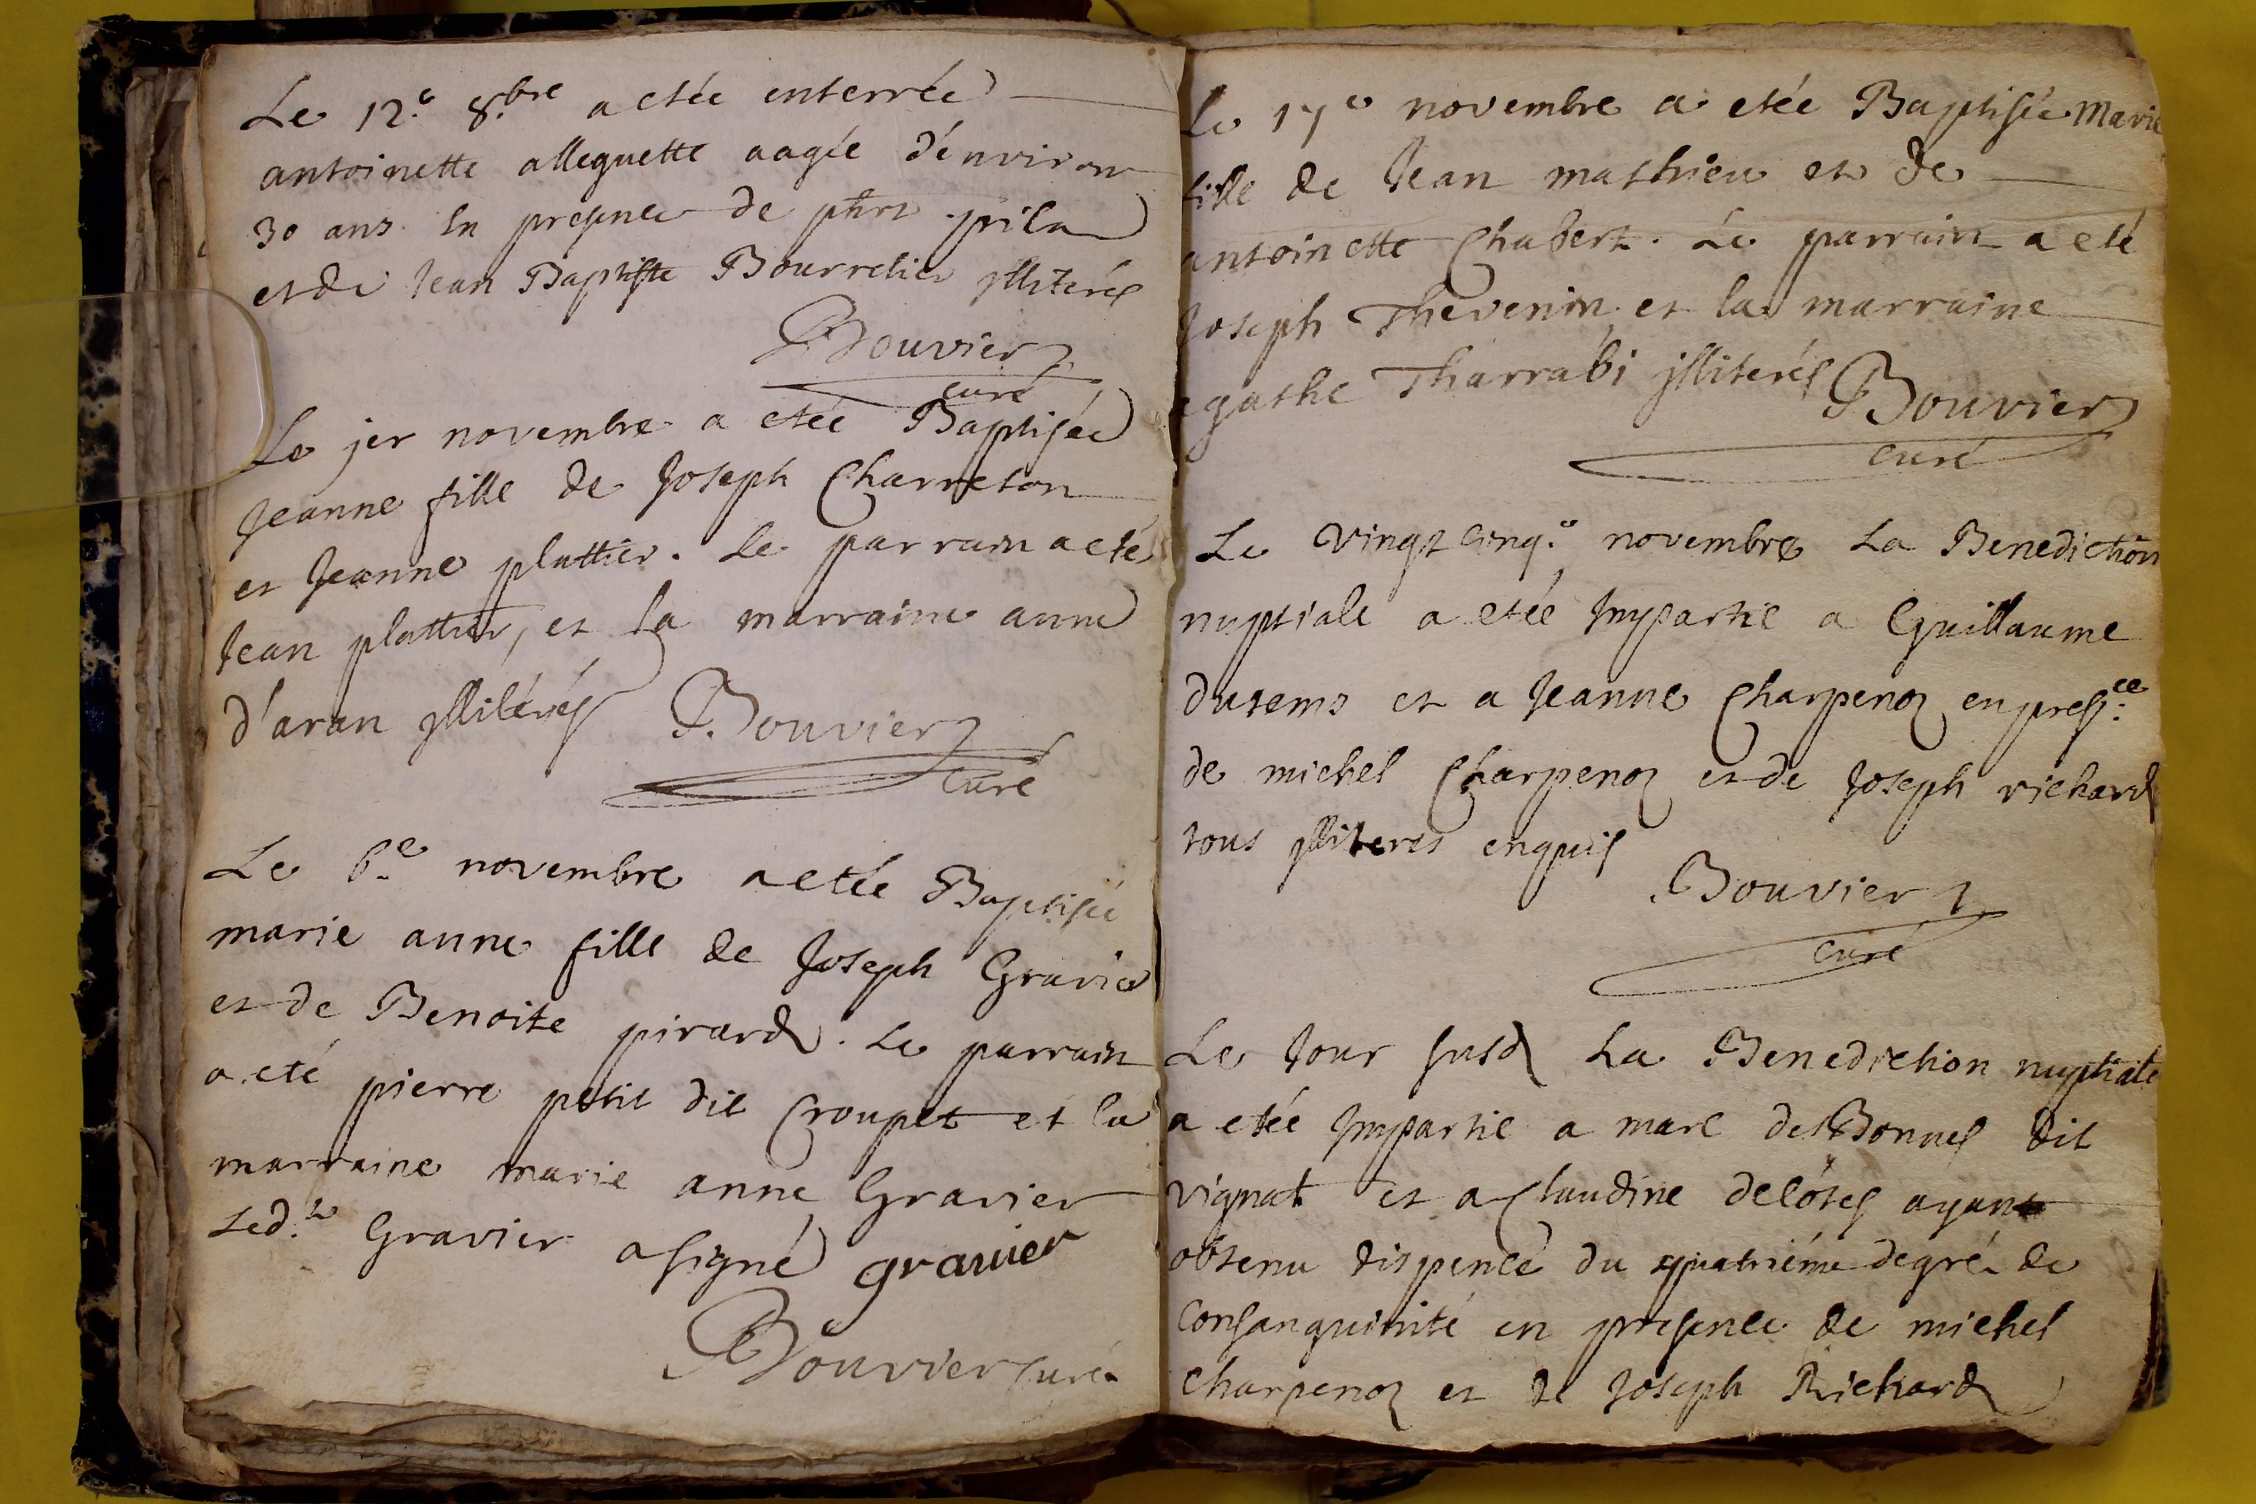 Le 12.e 8.bre a etée enterrée
antoinette alleguette aagée d'énviron
30 ans. en presence de phrt pila
et de Jean Baptiste Bourrelier jlliterés
Bouvier
curé
Le jer novembre a etée Baptisée
Jeanne fille de Joseph Charreton
et Jeanne plattier. Le parrain a eté
Jean plattier, et la marraine anne
d'aran jllitérés Bouvier
curé
Le 6.e novembre a etée Baptisée
marie anne fille de Joseph Gravier
et de Benoite pirard. Le parrain
a eté pierre petit dit Croupet et la
marraine marie anne Gravier
Led.t Gravier a signé gravier
Bouvier curé
Le 17e novembre a etée Baptisée Marie
fille de Jean mathieu et de
antoinette Chabert. Le parrain a eté
Joseph Thevenin et la marraine
agathe Tharrabi jlliterés Bouvier
curé
Le vingt cinq.e novembre La Benediction
nuptiale a etée Impartie a Guillaume
dutems et a Jeanne Charpenoz en pres.ce
de michel Charpenoz et de Joseph richard
tous jlliterés enquis
Bouvier
curé
Le Jour susd La Benediction nuptiale
a etée Impartie a marc desBonnes dit
vignat et a Claudine delôtes ayant
obtenu dispence du quatriéme degré de
Consanguinité en presence de michel
Charpenoz et de Joseph Richard